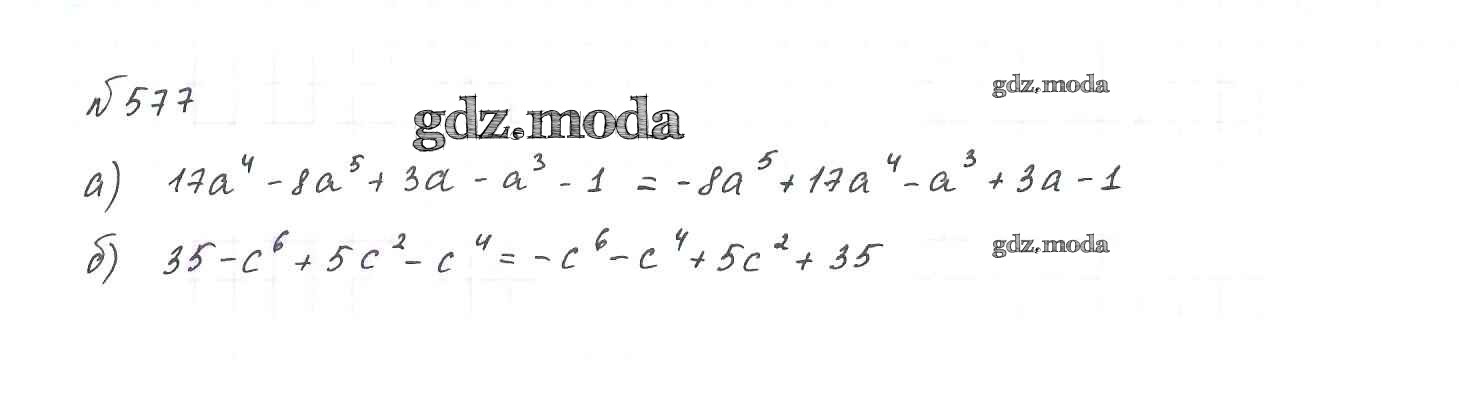 № 577
gdz.moda
gdz.moda
а) 17a⁴ - 8a⁵ + 3a - a³ - 1 = -8a⁵ + 17a⁴ - a³ + 3a - 1
б) 35 - c⁶ + 5c² - c⁴ = -c⁶ - c⁴ + 5c² + 35
gdz.moda